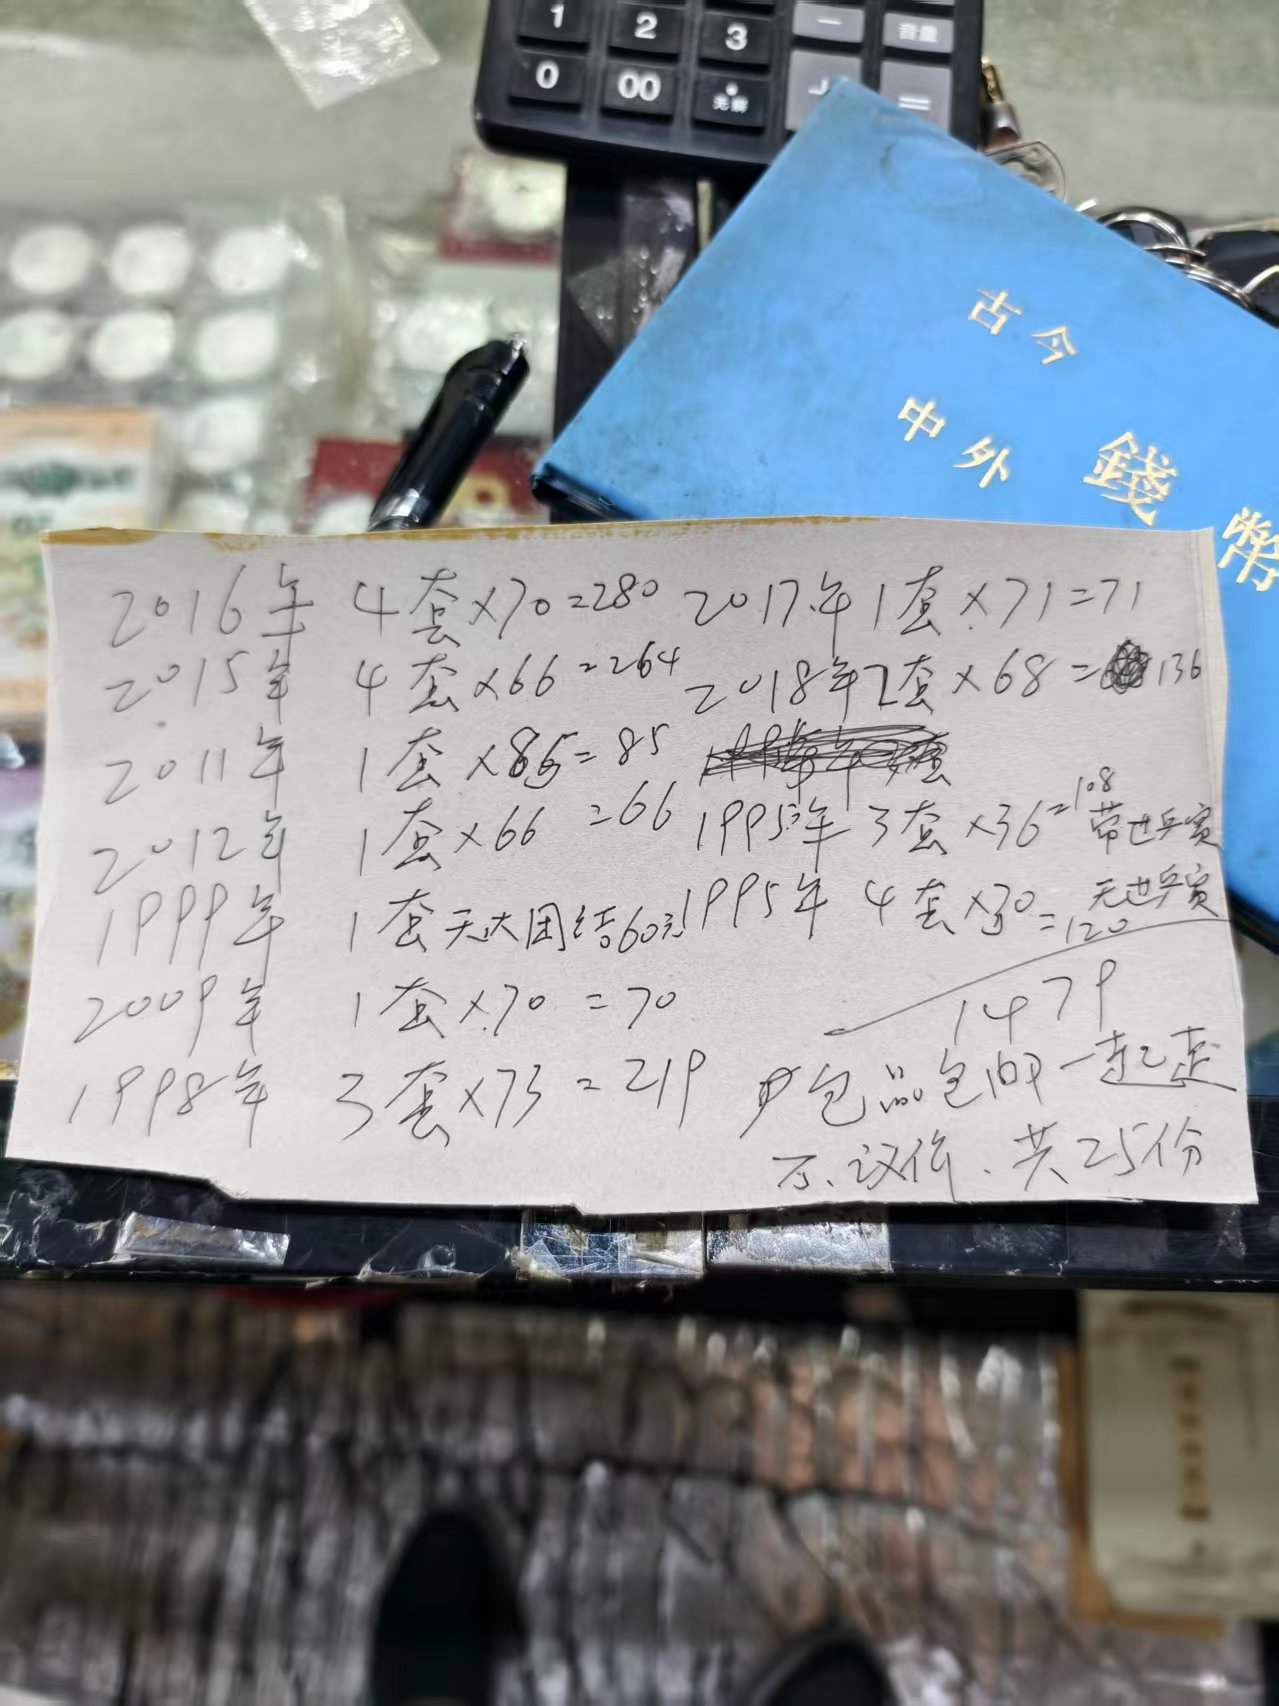 1 2 3 一 音量
0 00 =
古今
中外
錢幣
2016年 4套×70=280
2015年 4套×66=264
2011年 1套×85=85
2012年 1套×66=66
1999年 1套无大团结60元
2009年 1套×70=70
1998年 3套×73=219
2017年1套×71=71
2018年2套×68=136
1995年3套×36=108
带世乒赛
1995年 4套×30=120
无世乒赛
1479
包品包 一起走
不议价、共25份